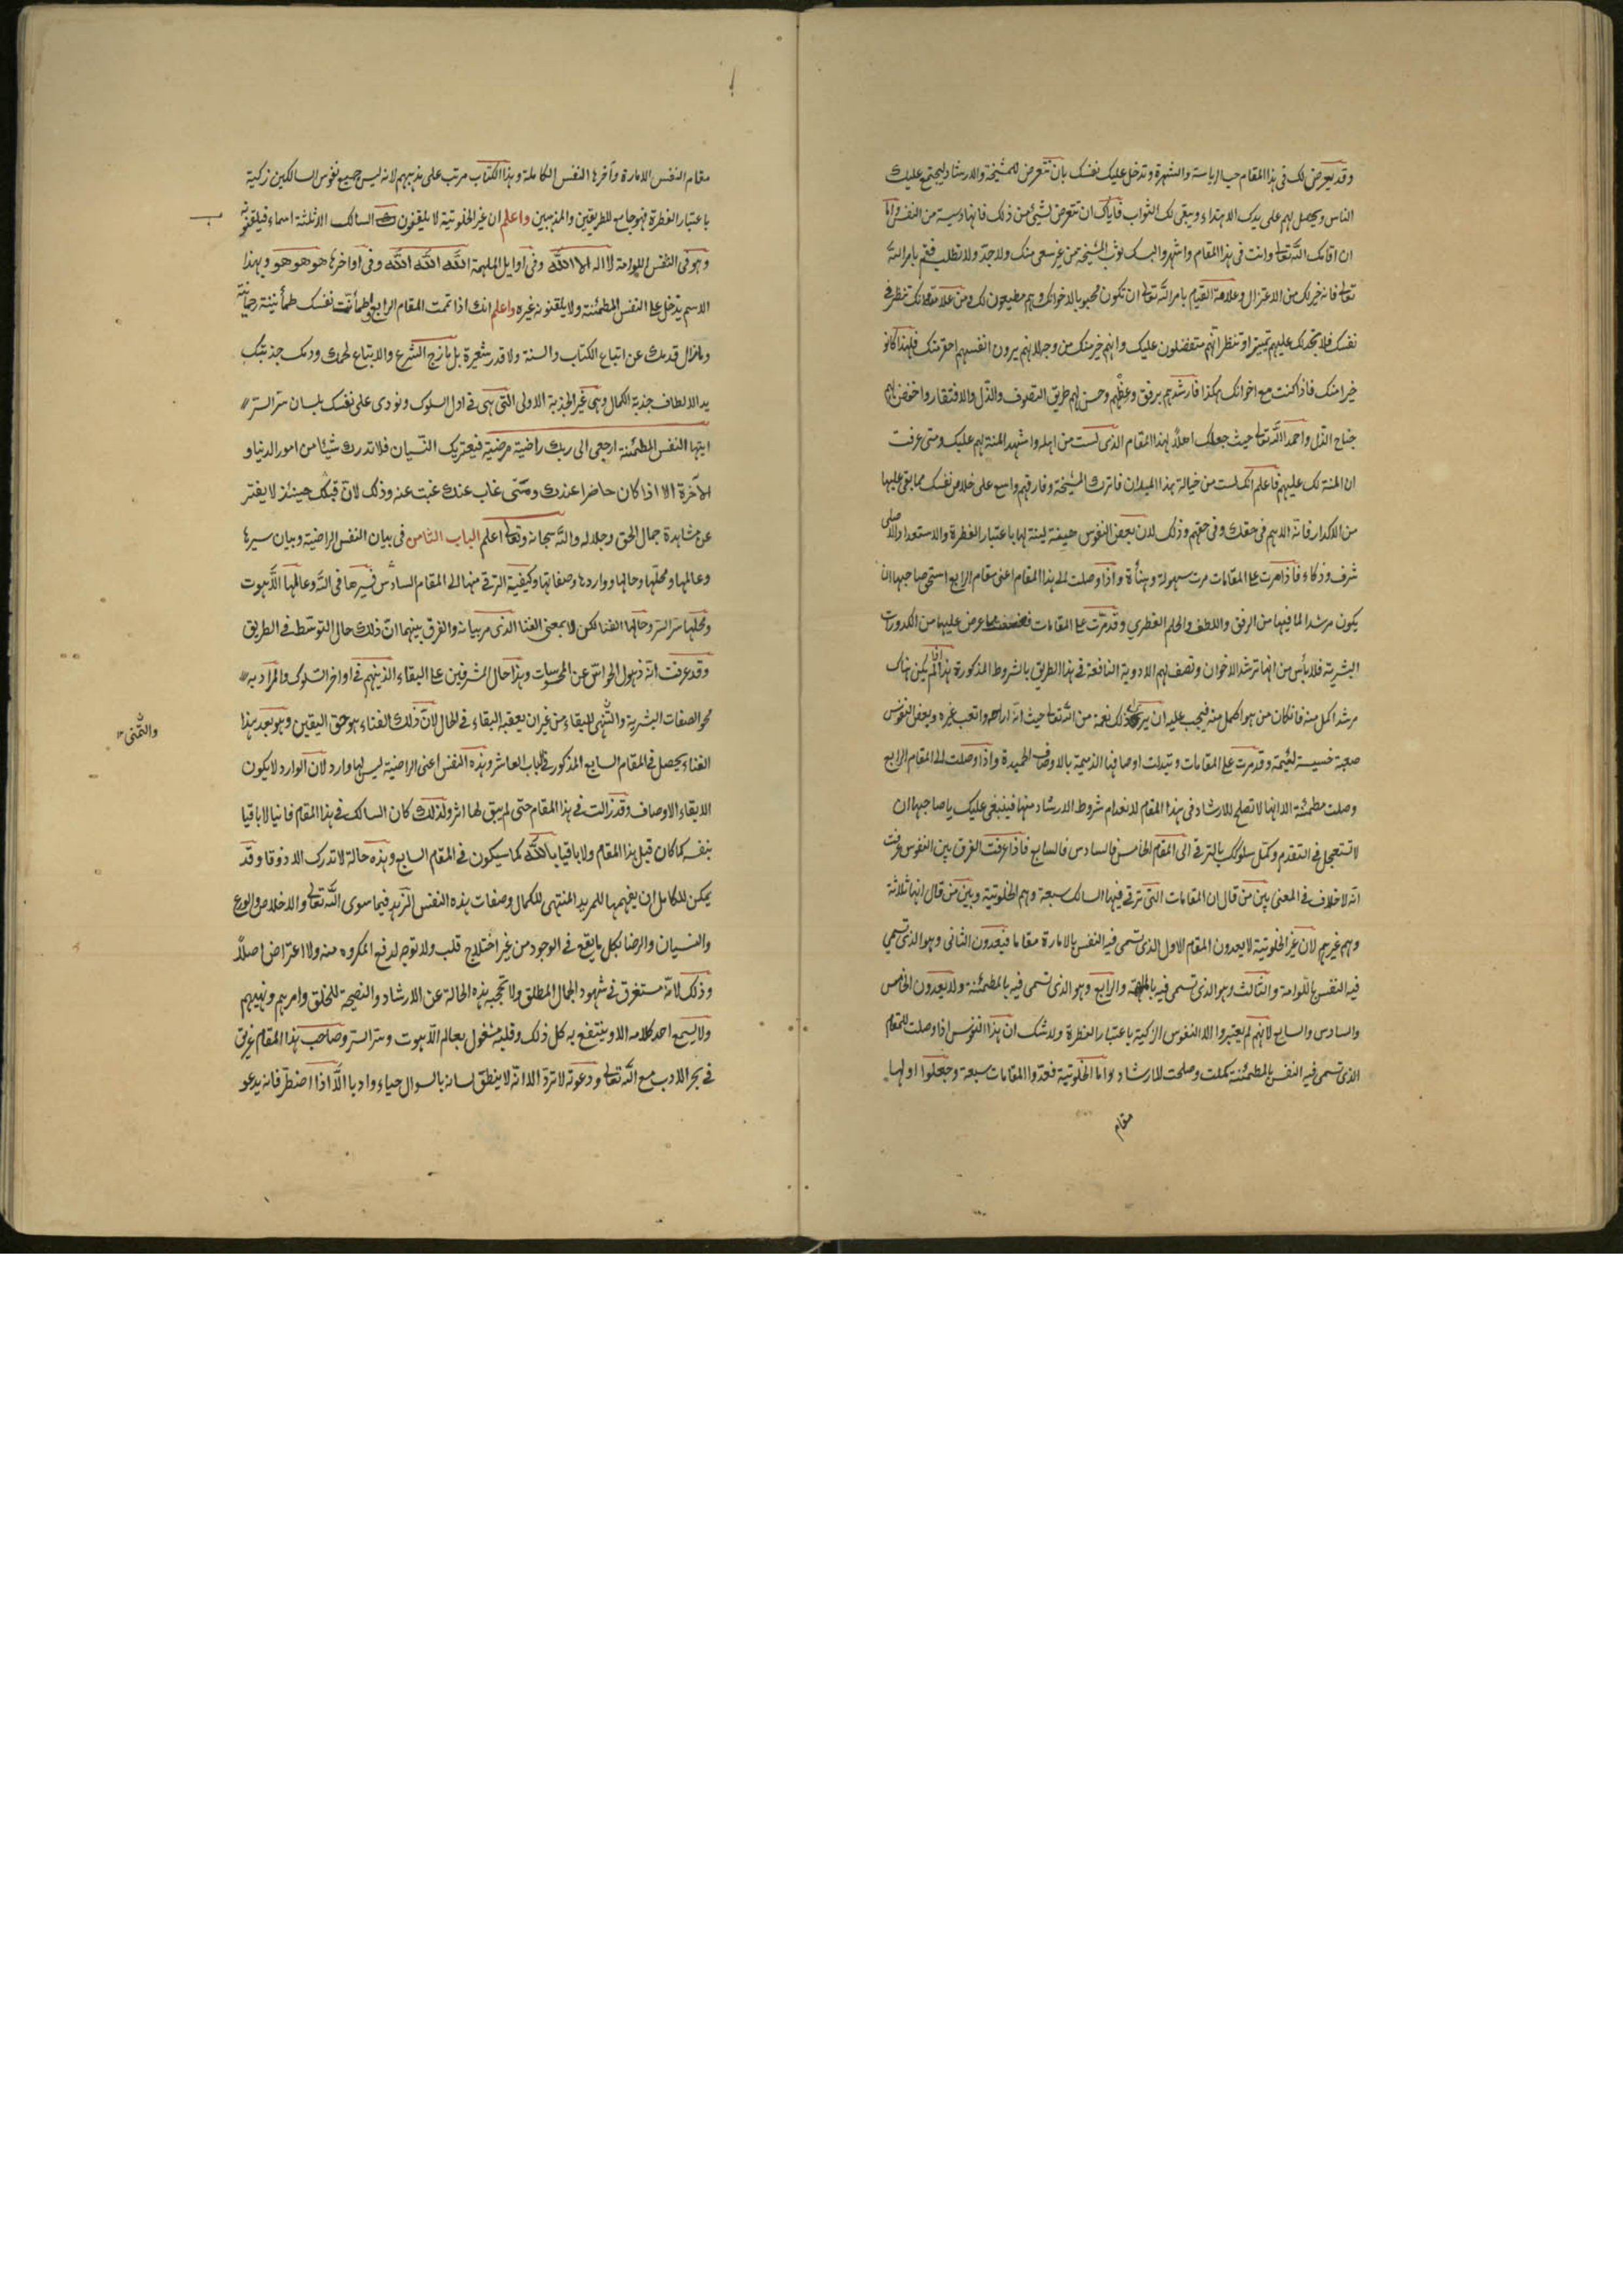 وقد يعرض لك فى هذا المقام حب الرياسة والشهرة وتدخل عليك نفسك بان تتعرض للمشيخة والارشاد ليجتمع عليك
الناس ويحصل لهم على يدك الاهتداء ويبقى لك الثواب فاياك ان تتعرض لشيئ من ذلك فانها دسيسة من النفس واما
ان اقامك الله تعالى وانت فى هذا المقام واشهر والبسك ثوب المشيخة من غير سعى منك ولا جد ولا تطلب فقم بامر الله
تعالى فانه خير لك من الاعتزال وعلامة القيام بامر الله تعالى ان تكون محبوبا لاخوانك وهم مطيعون لك ومن علامته انك تنظر فى
نفسك فلا تجد لك عليهم تمييزا وتنظر انهم متفضلون عليك وانهم خير منك من وجه لانهم يرون انفسهم احقر منك فلهذا كانو
خيرا منك فاذا كنت مع اخوانك هكذا فارشدهم برفق وعظهم وحسن لهم طريق التصوف والذل والافتقار واخفض لهم
جناح الذل واحمد الله تعالى حيث جعلك اهلا لهذا المقام الذى لست من اهله واشهد المنة لهم عليك ومتى عرفت
ان المنة لك عليهم فاعلم انك لست من خيالة هذا الميدان فاترك المشيخة وفارقهم واسع على خلاص نفسك مما بقى عليها
من الاكدار فانه الاهم فى حقك وفى حقهم وذلك لان بعض النفوس هينة لينة لها باعتبار الفطرة والاستعداد الاصلى
شرف وذكاء فاذا مرت على المقامات مرت بسهولة وهنأة واذا وصلت الى هذا المقام اعنى مقام الرابع استحق صاحبها ان
يكون مرشدا لما فيها من الرفق واللطف والحلم الفطري وقد مرت على المقامات ما عرض عليها من الكدورات
البشرية فلا بأس من انها ترشد الاخوان وتصف لهم الادوية النافعة فى هذا الطريق بالشروط المذكورة هذا اذا لم يكن هناك
مرشد اكمل منه فان كان من هو اكمل منه فيجب عليه ان يرى ذلك نعمة من الله تعالى حيث انه اراحه واتعب غيره وبعض النفوس
صعبة خسيسة لئيمة وقد مرت على المقامات وتبدلت اوصافها الذميمة بالاوصاف الحميدة واذا وصلت الى المقام الرابع
وصلت مطمئنة الا انها لا تصلح للارشاد فى هذا المقام لانعدام شروط الارشاد منها فينبغى عليك يا صاحبها ان
لا تستعجل فى التقدم وكمل سلوكك بالترقى الى المقام الخامس فالسادس فالسابع فاذا عرفت الفرق بين النفوس عرفت
انه لا خلاف فى المعنى بين من قال ان المقامات التى ترقى فيها السالك سبعة وهم الخلوتية وبين من قال انها ثلاثة
وهم غيرهم لان غير الخلوتية لا يعدون المقام الاول الذى تسمى فيه النفس بالامارة مقاما فيعدون الثانى وهو الذى تسمى
فيه النفس باللوامة والثالث وهو الذى تسمى فيه بالملهمة والرابع وهو الذى تسمى فيه بالمطمئنة ولا يعدون الخامس
والسادس والسابع لانهم لم يعتبروا الا النفوس الزكية باعتبار الفطرة ولا شك ان هذا النفوس اذا وصلت للمقام
الذى تسمى فيه النفس بالمطمئنة كملت وصلحت للارشاد واما الخلوتية فعدوا المقامات سبعة وجعلوا اولها
مقام
مقام النفس الامارة وآخرها النفس الكاملة وهذا الكتاب مرتب على مذهبهم لانه ليس جميع نفوس السالكين زكية
باعتبار الفطرة فهو جامع للطريقين والمذهبين واعلم ان غير الخلوتية لا يلقنون السالك الا ثلثة اسماء فيلقنونه
وهو فى النفس اللوامة لا اله الا الله وفى اوايل الملهمة الله الله الله وفى اواخرها هو هو هو وبهذا
الاسم يدخل على النفس المطمئنة ولا يلقنونه غيره واعلم انك اذا تمت المقام الرابع واطمأنت نفسك طمأنينة رحمانية
وما زال قدمك عن اتباع الكتاب والسنة ولا قدر شعرة بل مازج الشرع والاتباع لحمك ودمك جذبتك
يد الالطاف جذبة الكمال وهى غير الجذبة الاولى التى هى فى اول السلوك ونودى على نفسك بلسان سر السر
ايتها النفس المطمئنة ارجعى الى ربك راضية مرضية فيعتريك النسيان فلا تدرك شيئا من امور الدنيا و
الآخرة الا اذا كان حاضرا عندك ومتى غاب عندك غبت عنه وذلك لان قبلك حينئذ لا يفتر
عن مشاهدة جمال الحق وجلاله والله سبحانه وتعالى اعلم الباب الثامن فى بيان النفس الراضية وبيان سيرها
وعالمها ومحلها وحالها وواردها وصفاتها وكيفية الترقى منها الى المقام السادس فسيرها فى الله وعالمها اللاهوت
ومحلها سر السر وحالها الفنا لكن لا بمعنى الفنا الذى مر بيانه والفرق بينهما ان ذلك حال التوسط فى الطريق
وقد عرفت انه ذهول الحواس عن المحسوسات وهذا حال المشرفين على البقاء الذين هم فى اواخر السلوك والمراد به
محو الصفات البشرية والتهى للبقاء من غير ان يعقبه البقاء فى الحال لان ذلك الفناء هو حق اليقين وهو بعد هذا
والتمنى ١٢
الفناء يحصل فى المقام السابع المذكور فى الباب العاشر وهذه النفس اعنى الراضية ليس لها وارد لان الوارد لا يكون
الا بقاء الاوصاف وقد زالت فى هذا المقام حتى لم يبق لها اثر ولذلك كان السالك فى هذا المقام فانيا لا باقيا
بنفسه كما كان قبل هذا المقام ولا باقيا بالله كما سيكون فى المقام السابع وهذه حالة لا تدرك الا ذوقا وقد
يمكن للكامل ان يفهمها للمريد المنتهى للكمال وصفات هذه النفس الزهد فيما سوى الله تعالى والاخلاص والورع
والنسيان والرضا بكل ما يقع فى الوجود من غير اختلاج قلب ولا توجه لدفع المكروه منه ولا اعتراض اصلا
وذلك لانه مستغرق فى شهود الجمال المطلق ولا تحجبه هذه الحالة عن الارشاد والنصيحة للخلق وامرهم ونهيهم
ولا يسمع احد كلامه الا وينتفع به كل ذلك وقلبه مشغول بعالم اللاهوت وسر السر وصاحب هذا المقام غريق
فى بحر الادب مع الله تعالى ودعوته لا ترد الا انه لا ينطق لسانه بالسوال حياء وادبا الا اذا اضطر فانه يدعو